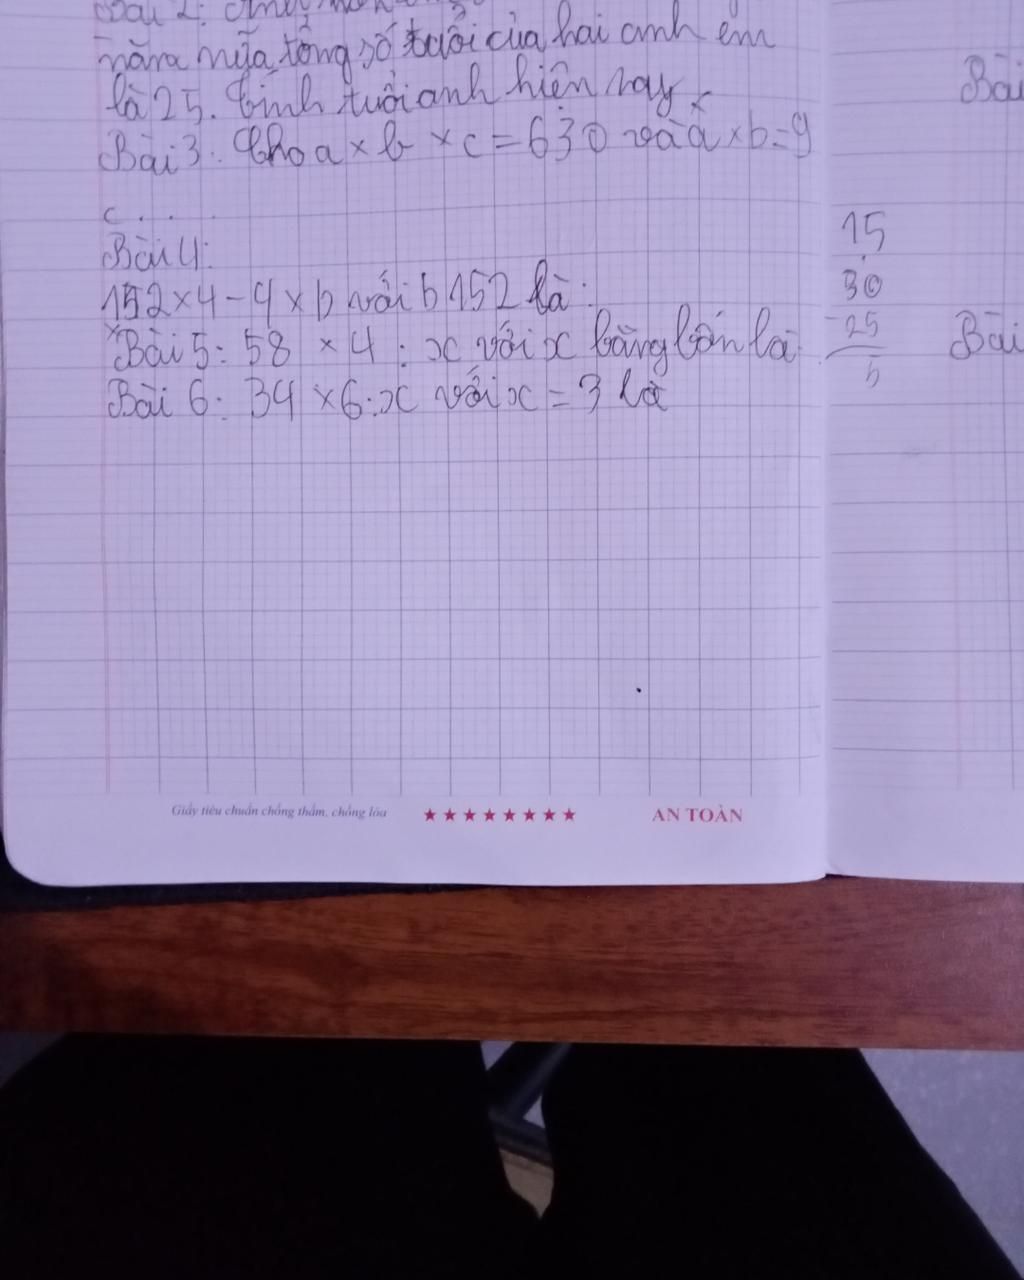 Bài 2:
năm nữa tổng số tuổi của hai anh em
là 25. tính tuổi anh hiện nay
Bài 3: Cho a × b × c = 630 và a × b = 9
c . . .
Bài 4:
152 × 4 - 4 × b với b 152 là :
Bài 5: 58 × 4 : x với x bằng bốn là
Bài 6: 34 × 6 : x với x = 3 là
Giấy tiêu chuẩn chống thấm, chống lóa ★★★★★★★★ AN TOÀN
Bài
15
30
- 25
5
Bài